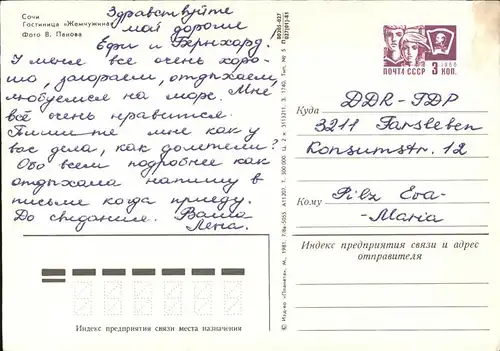 Сочи
Гостиница «Жемчужина»
Фото В. Панова
Здравствуйте
мои дорогие
Ефи и Бернхорд.
У меня все очень хоро-
шо, загораем, отдыхаем,
любуемся на море. Мне
всё очень нравится.
Пишите мне как у
вас дела, как долетели?
Обо всем подробнее как
отдыхала напишу в
письме когда приеду.
До свидания. Ваша
Лена.
ПОЧТА СССР 3 КОП.
1966
Куда DDR-ГДР
3211 Farsleben
Konsumstr. 12
Кому Pilz Eva-
-Maria
Индекс предприятия связи и адрес
отправителя
Индекс предприятия связи места назначения
© Изд-во «Планета», М., 1981.